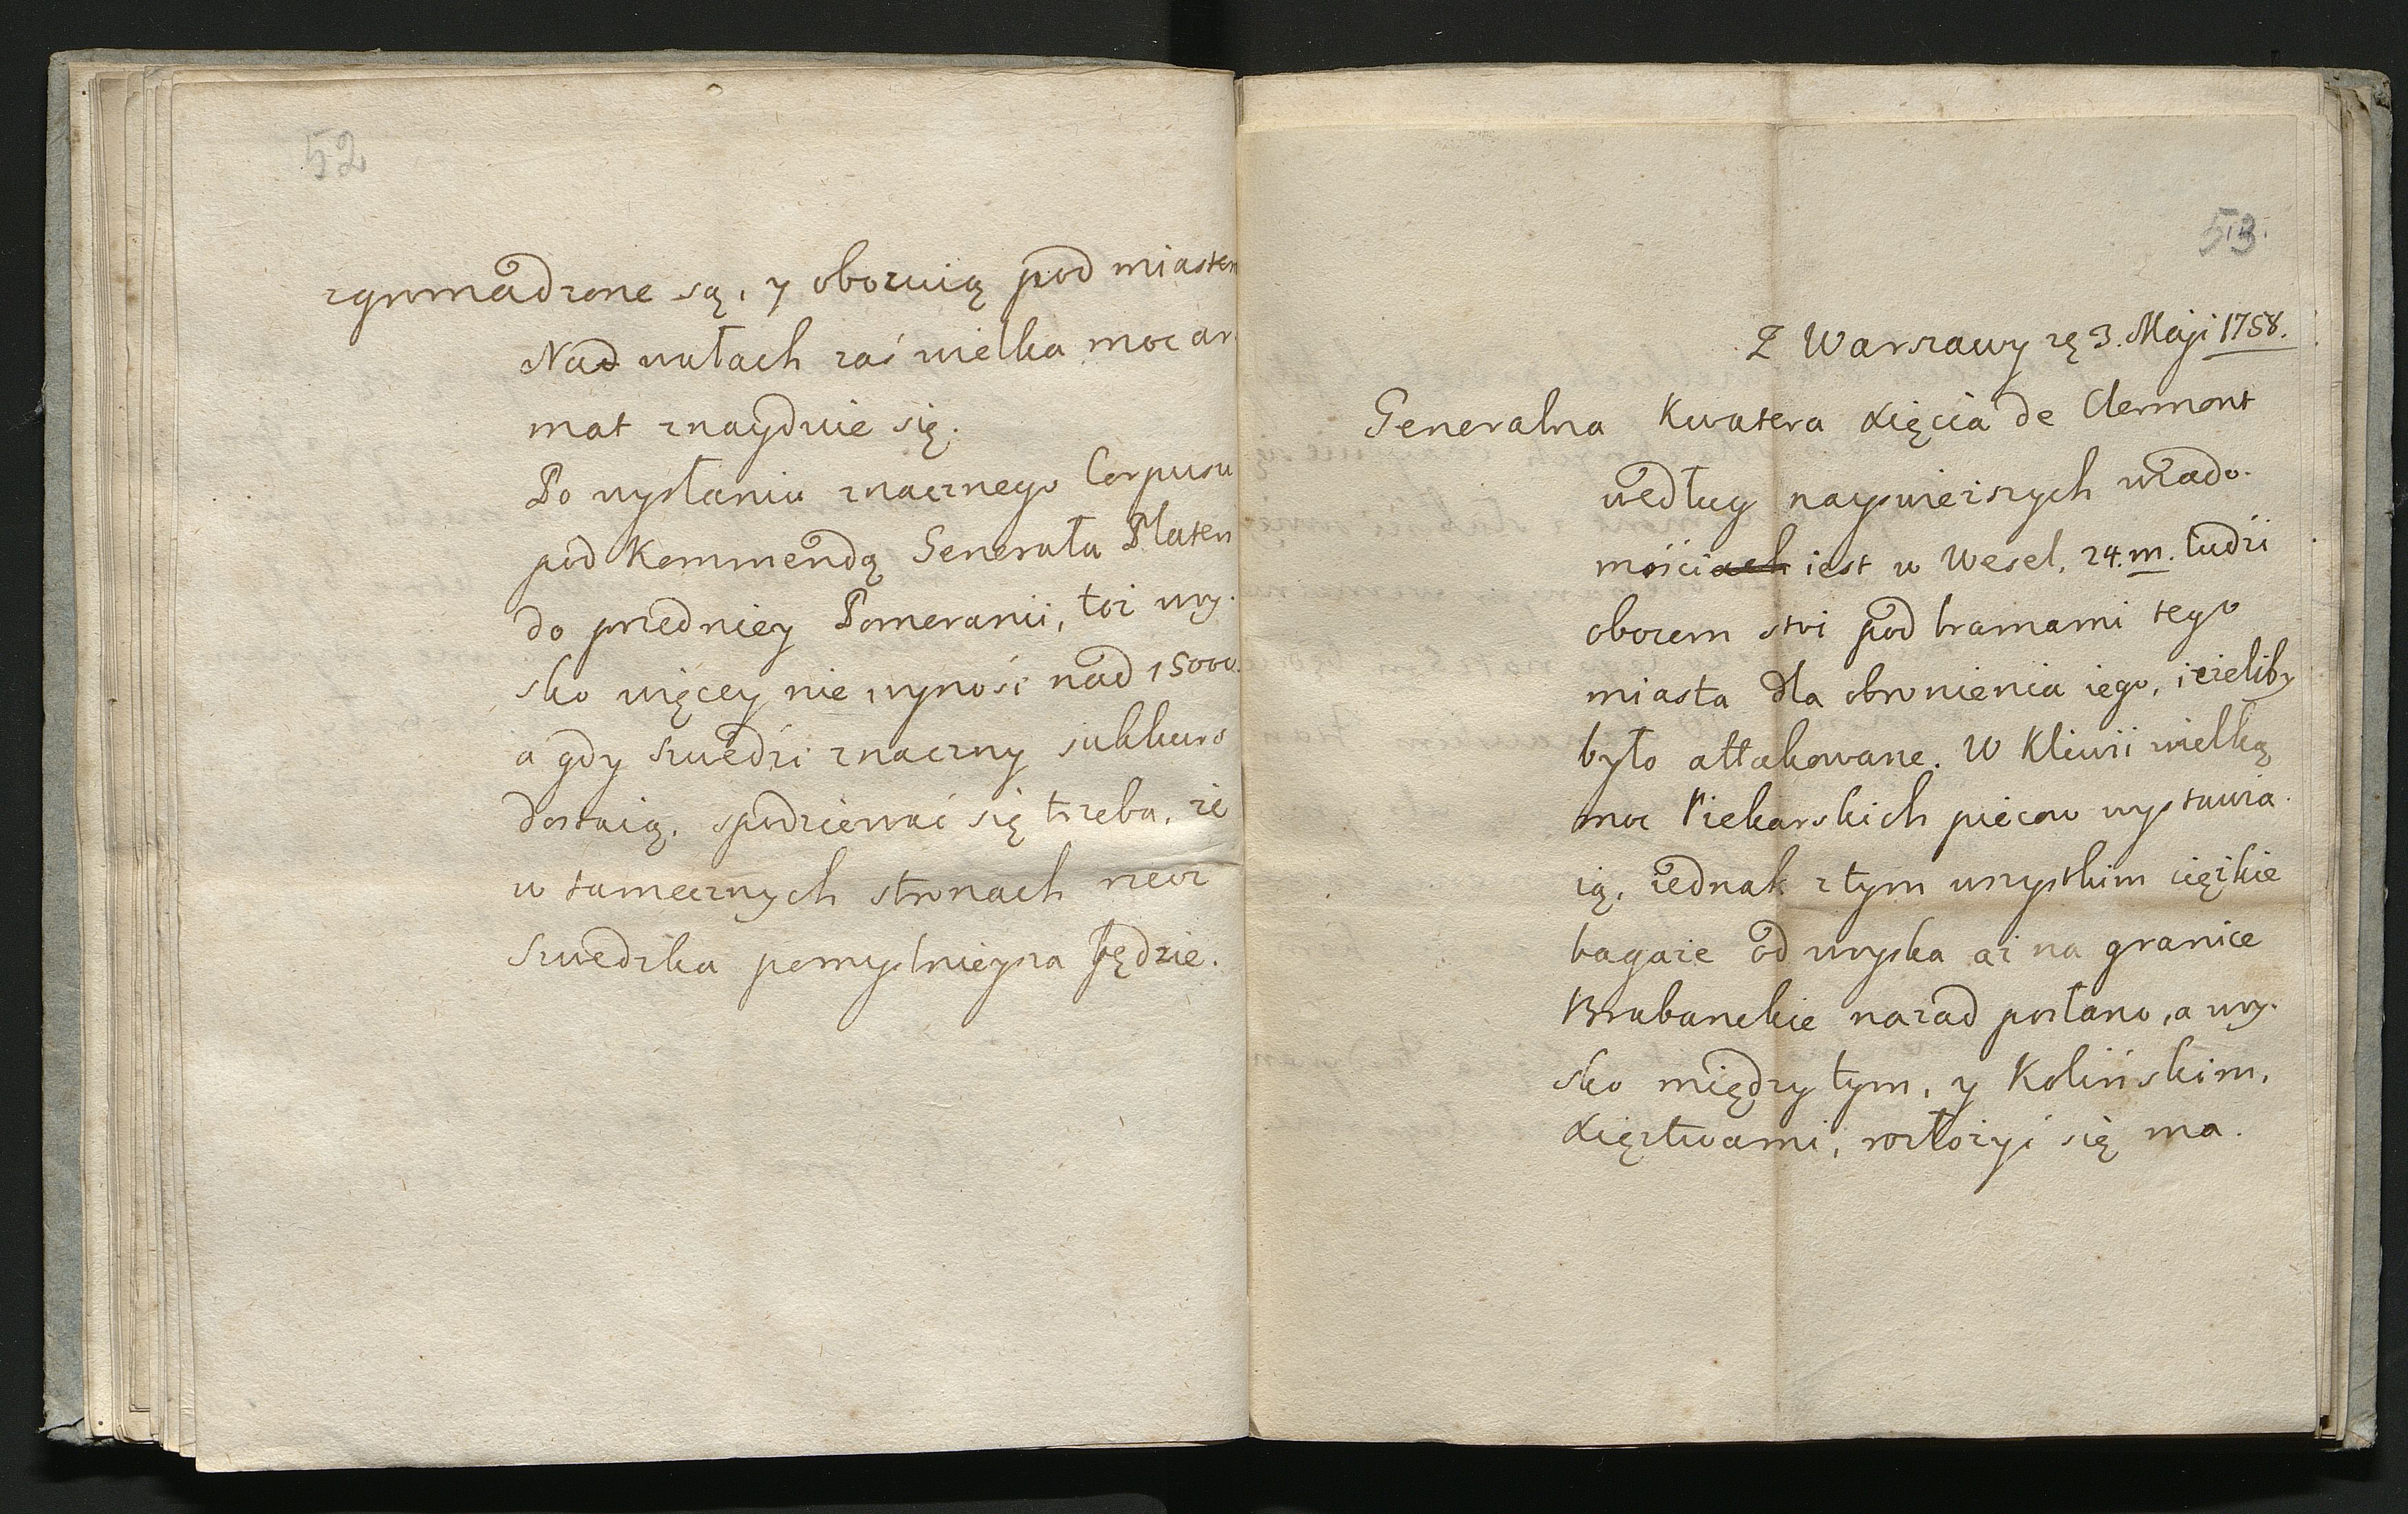 52
zgromadzone są, y obozuią pod miastem
Nad wałach zaś wielka moc ar-
mat znayduie się.
Po wysłaniu znacznego Corpusu
pod Kommendą Generała Platen
do przedniey Pomeranii, toż woy-
sko więcey nie wynosi nad 15000.
a gdy Szwedzi znaczny sukkurs
dostaią, spodziewać się trzeba, że
w tamecznych stronach rzecz
Szwedzka pomyślnieysza będzie.
53.
Z Warszawy 23. Maji 1758.
Generalna Kwatera Xięcia de Clermont
według nayświeższych wiado-
mości iest w Wesel, 24.m. ludzi
obozem stoi pod bramami tego
miasta dla obronienia iego, ieżeliby
było attakowane. W Kliwii wielką
moc Piekarskich piecow wystawia-
ią, iednak z tym wszystkim ciężkie
bagaże od woyska aż na granice
Brabanckie nazad posłano, a woy-
sko między tym, y Kolińskim,
Xięstwami, rozłożyć się ma.